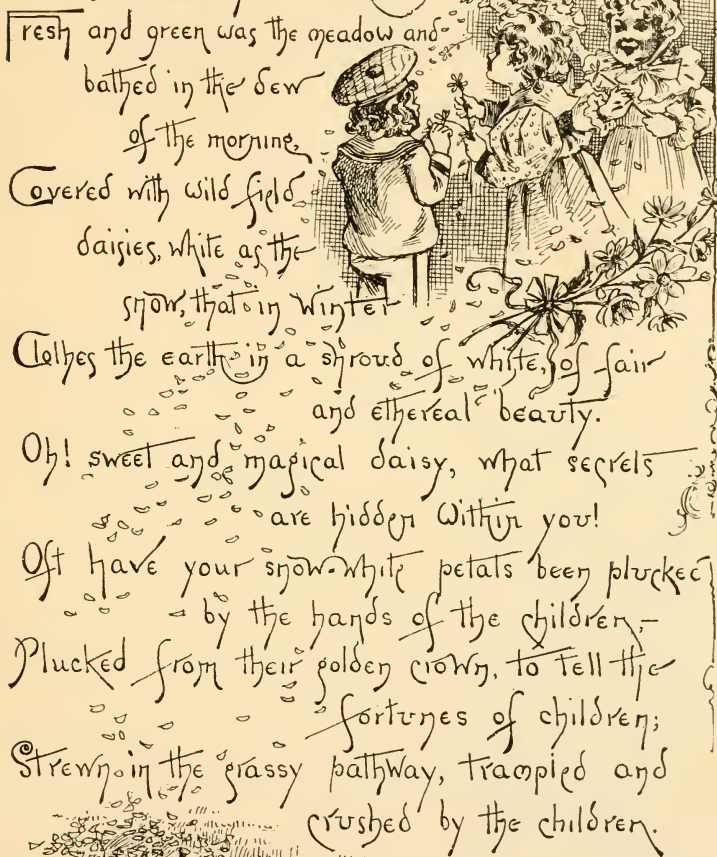 Fresh and green was the meadow and
bathed in the dew
of the morning,
Covered with wild field
daisies, white as the
snow, that in Winter
Clothes the earth in a shroud of white, of fair
and ethereal beauty.
Oh! sweet and magical daisy, what secrets
are hidden within you!
Oft have your snow-white petals been plucked
by the hands of the children,-
Plucked from their golden crown, to tell the
fortunes of children;
Strewn in the grassy pathway, trampled and
crushed by the children.